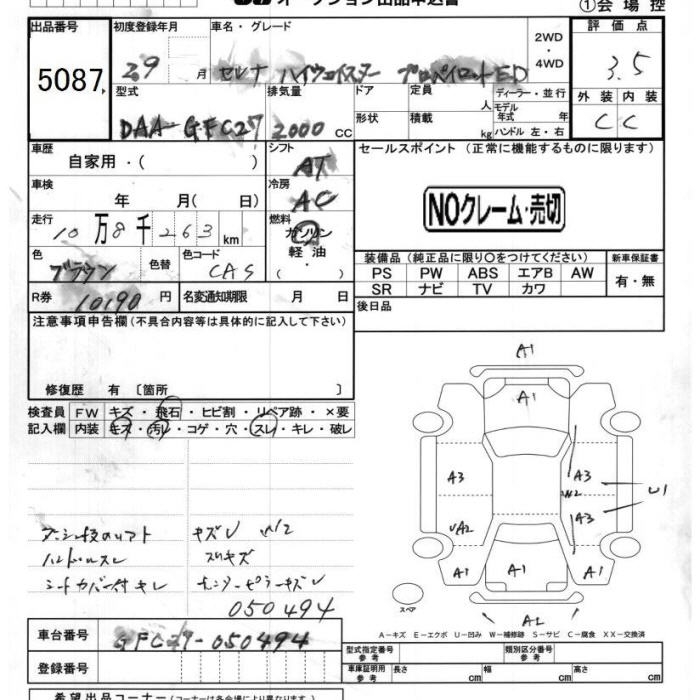 ①会場控
出品番号
5087
初度登録年月
29 月
車名・グレード
セレナ ハイウェイスター プロパイロットED
2WD
・
4WD
評価点
3.5
外装 内装
C C
型式
DAA-GFC27
排気量
2000 CC
ドア
形状
定員
人
積載
kg
ディーラー・並行
モデル
年式 年
ハンドル 左・右
車歴
自家用・( )
シフト
AT
車検
年 月( 日)
冷房
AC
走行
10万8千263 km
燃料
ガソリン
軽油
( )
色
ブラウン
色替
色コード
CAS
R券
10190 円
名変通知期限 月 日
セールスポイント (正常に機能するものに限ります)
NOクレーム・売切
装備品 (純正品に限り○をつけてください)
新車保証書
PS PW ABS エアB AW
SR ナビ TV カワ
有・無
後日品
注意事項申告欄 (不具合内容等は具体的に記入して下さい)
修復歴 有 〔箇所 〕
検査員
記入欄
FW キズ・飛石・ヒビ割・リペア跡・×要
内装 キズ・汚レ・コゲ・穴・スレ・キレ・破レ
キズU W2
ハンドルスレ スリキズ
シートカバー付キレ センターピラーキズU
050494
A1
A1
A3
A3
W2
U1
A3
UA2
A1
A1
A1
スペア
A2
A-キズ E-エクボ U-凹み W-補修跡 S-サビ C-腐食 XX-交換済
車台番号
GFC27-050494
登録番号
型式指定番号
参考
類別区分番号
参考
車庫証明用
参考
長さ cm
幅 cm
高さ cm
希望出品コーナー